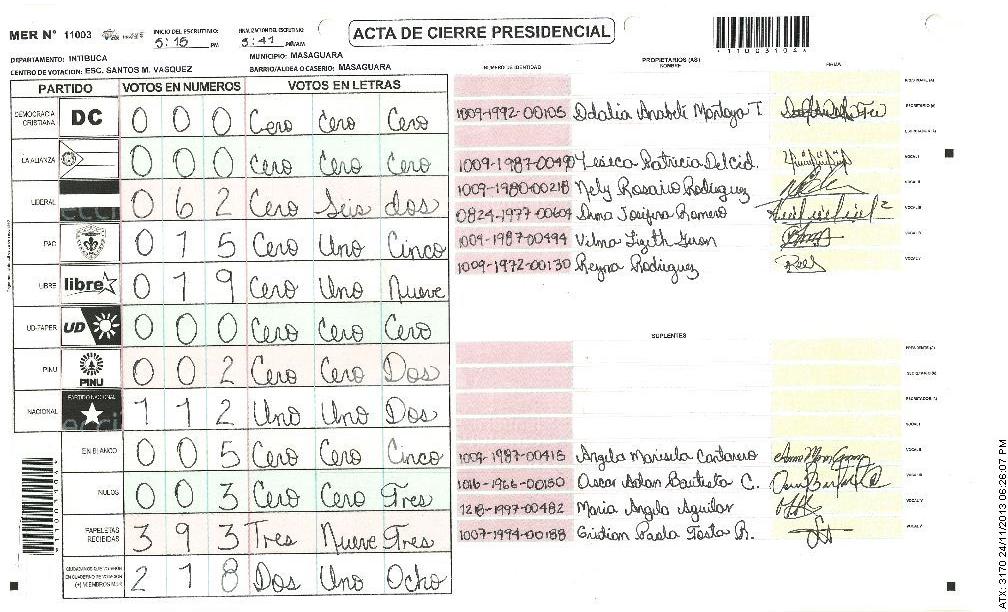 MER Nº 11003 INICIO DEL ESCRUTINIO: 5:15 PM FINALIZACION DEL ESCRUTINIO: 5:41 PM/AM ACTA DE CIERRE PRESIDENCIAL
DEPARTAMENTO: INTIBUCA MUNICIPIO: MASAGUARA
CENTRO DE VOTACION: ESC. SANTOS M. VASQUEZ BARRIO/ALDEA O CASERIO: MASAGUARA
NUMERO DE IDENTIDAD PROPIETARIOS (AS) NOMBRE FIRMA
PARTIDO VOTOS EN NUMEROS VOTOS EN LETRAS
DEMOCRACIA CRISTIANA DC 0 0 0 Cero Cero Cero
LA ALIANZA 0 0 0 Cero Cero Cero
LIBERAL 0 6 2 Cero Seis dos
PAC 0 1 5 Cero Uno Cinco
LIBRE libre 0 1 9 Cero Uno Nueve
UD-FAPER UD 0 0 0 Cero Cero Cero
PINU PINU 0 0 2 Cero Cero Dos
NACIONAL PARTIDO NACIONAL 1 1 2 Uno Uno Dos
EN BLANCO 0 0 5 Cero Cero Cinco
NULOS 0 0 3 Cero Cero Tres
PAPELETAS RECIBIDAS 3 9 3 Tres Nueve Tres
CIUDADANOS QUE VOTARON EN CUADERNO DE VOTACION (+) MIEMBROS MER 2 1 8 Dos Uno Ocho
1009-1992-00105 Odalia Anabel Montoya T.
1009-1987-00490 Yeseca Patricia Delcid.
1009-1980-00218 Nely Rosario Rodriguez
0824-1977-00604 Dina Josefina Romero
1009-1987-00494 Vilma Lizeth
1009-1972-00130 Reyna Rodriguez
SUPLENTES
1009-1987-00415 Angela Marisela Cantarero
1016-1966-00130 Oscar Adan Bautista C.
1218-1997-00482 Maria Angela Aguilar
1007-1994-00188 Cristian Paola Tosta R.
ATX: 3170 24/11/2013 06:26:07 PM